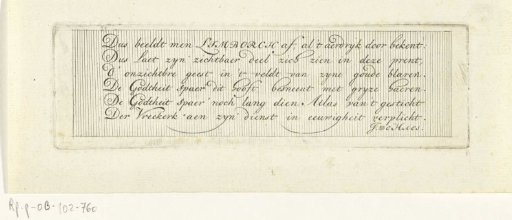 Dus beeldt men LIMBORCH af, al 't aerdryk door bekent.
Dus laet zyn zichtbaer deel zich zien in deze prent,
d' onzichtbre geest in 't veldt van zyne goude blaren.
De Godtheit spaer dit hooft, besneeut met gryze haeren.
De Godtheit spaer noch lang dien Atlas van 't gesticht
Der Vreekerk aen zyn dienst in eeuwigheit verplicht.
J. de Haes.
RP-P-OB-102-760